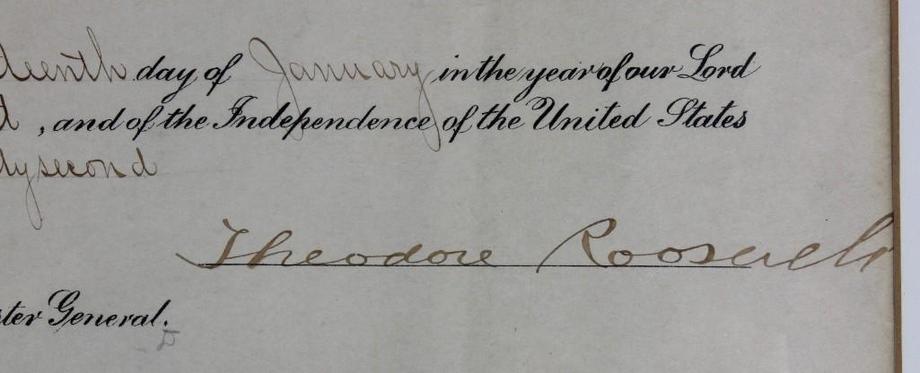 teenth day of January in the year of our Lord
d, and of the Independence of the United States
ty second
Theodore Roosevelt
ster General.